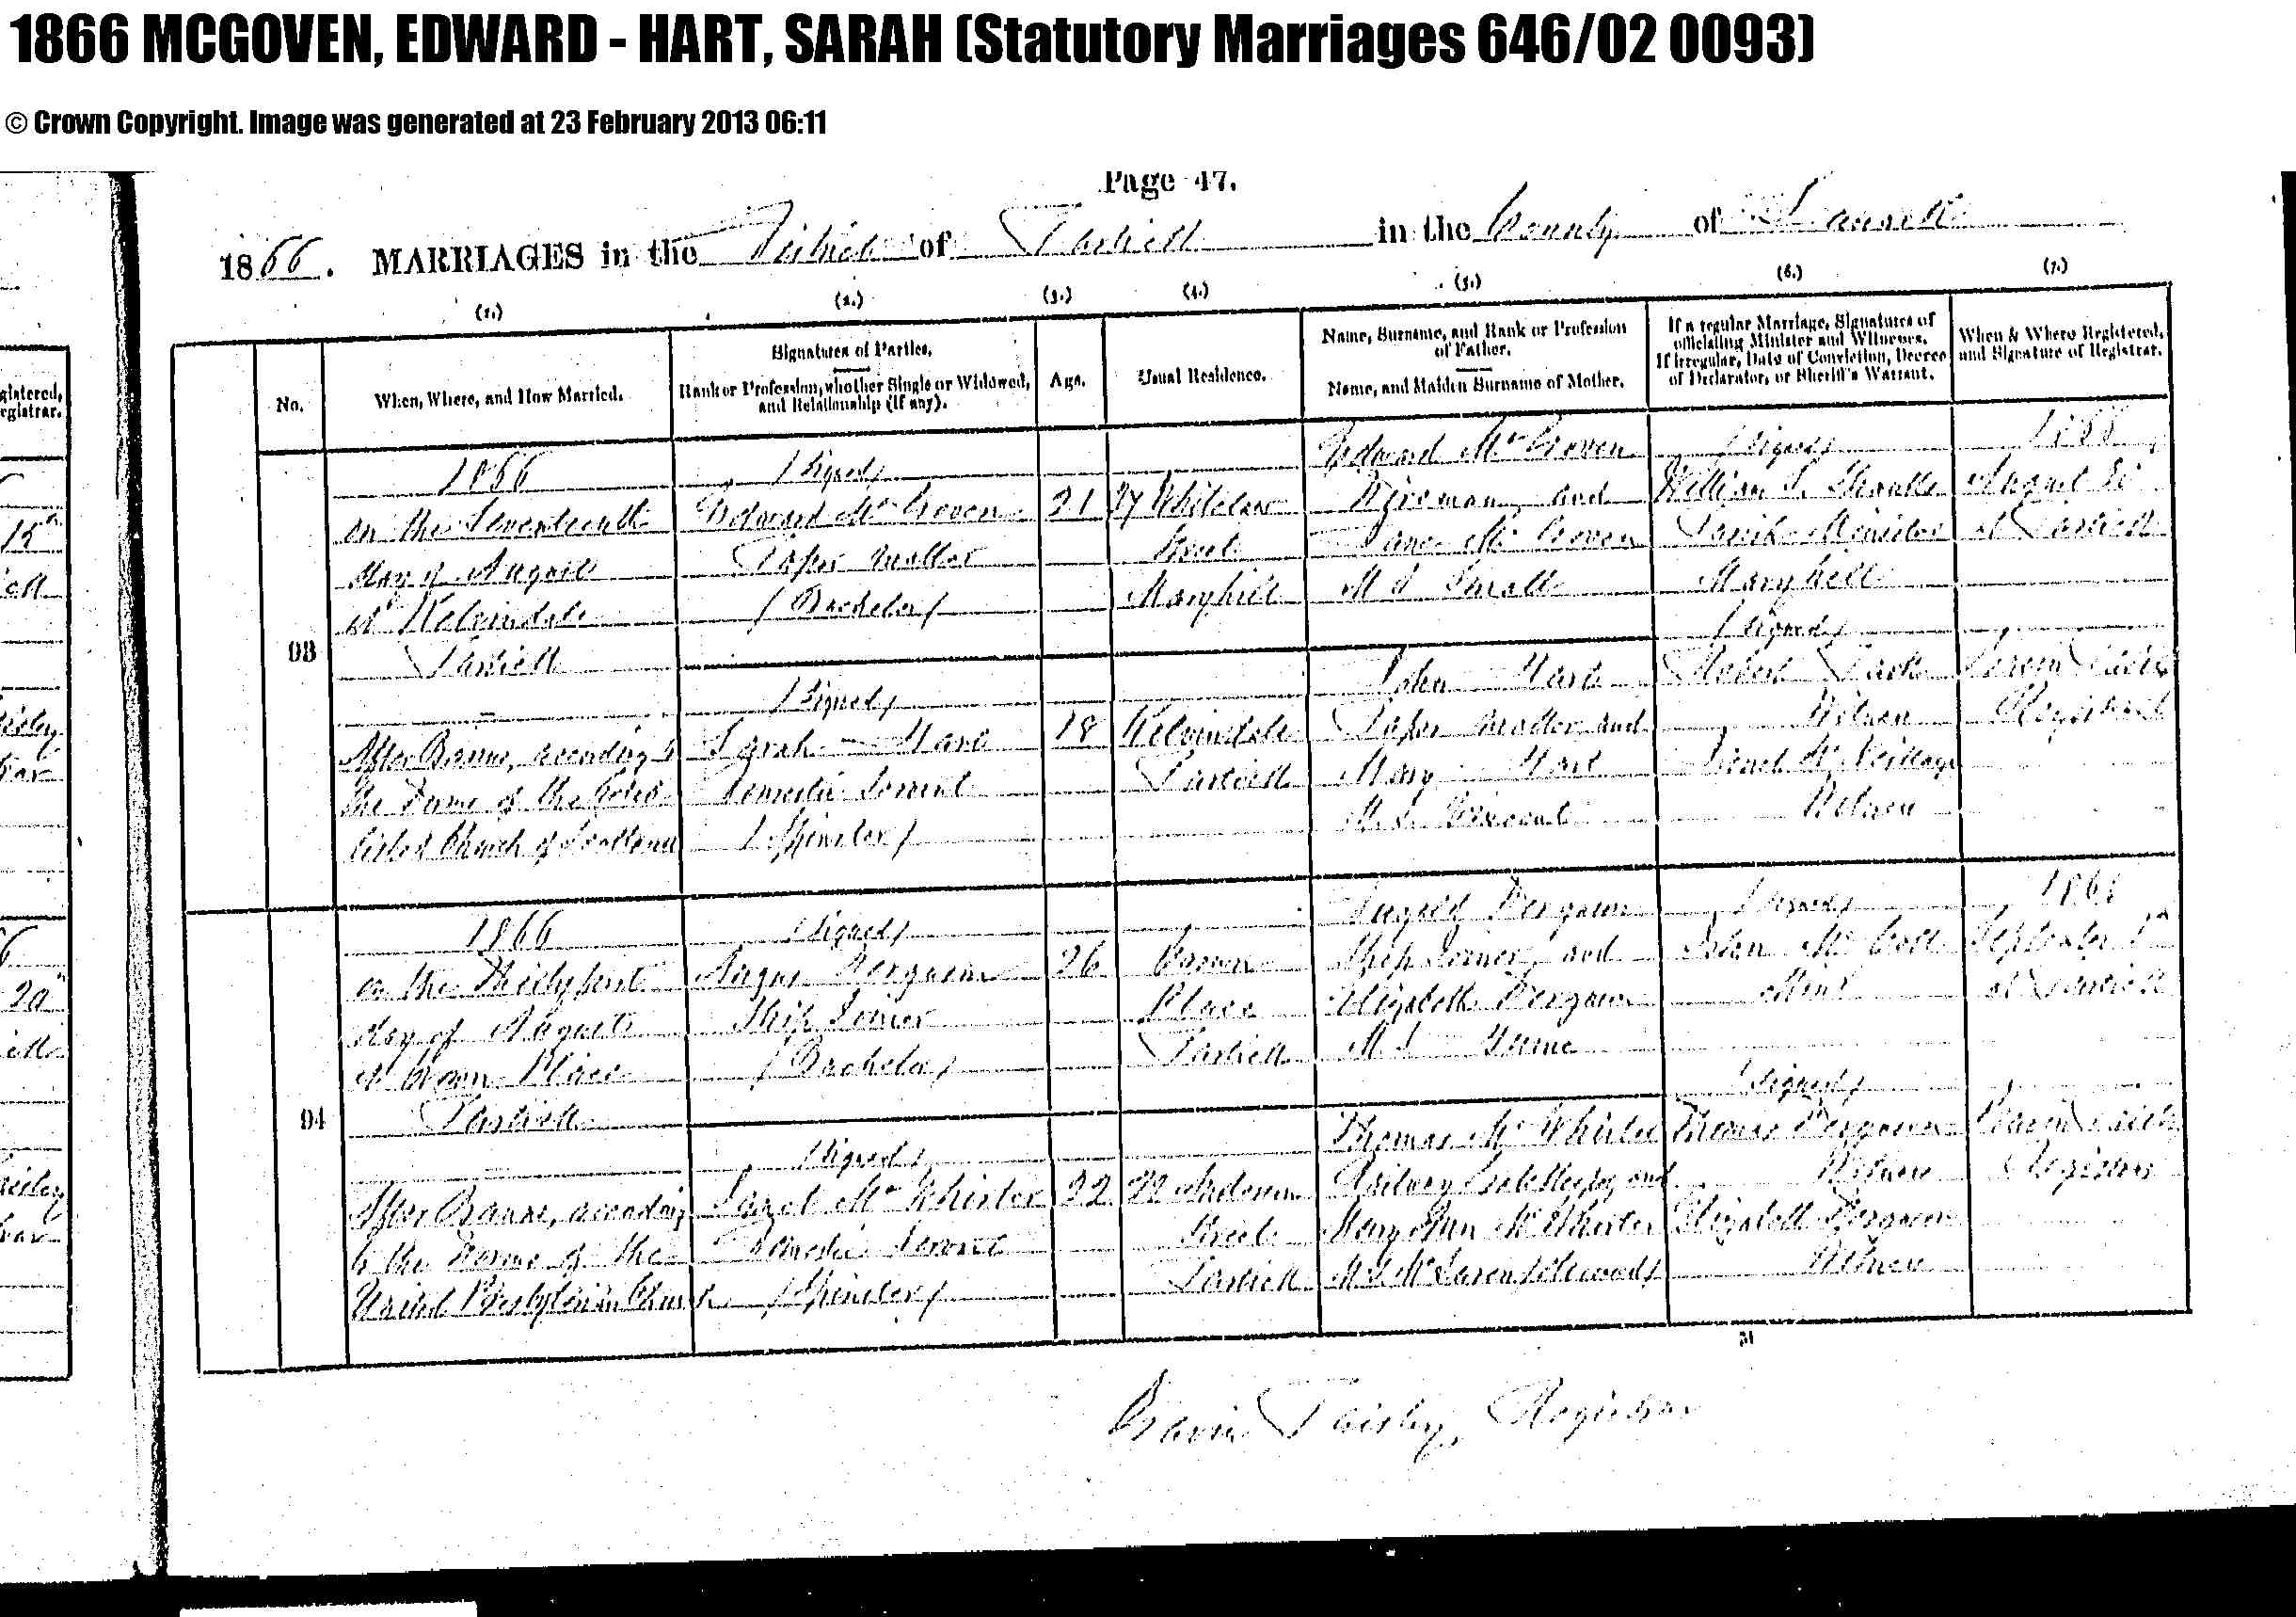 1866 MCGOVEN, EDWARD - HART, SARAH (Statutory Marriages 646/02 0093)
© Crown Copyright. Image was generated at 23 February 2013 06:11
Page 47.
1866. MARRIAGES in the District of Partick in the County of Lanark
(1.) (2.) (3.) (4.) (5.) (6.) (7.)
No.
When, Where, and How Married.
Signatures of Parties.
Rank or Profession, whether Single or Widowed,
and Relationship (if any).
Age.
Usual Residence.
Name, Surname, and Rank or Profession
of Father.
Name, and Maiden Surname of Mother.
If a regular Marriage, Signatures of
officiating Minister and Witnesses.
If irregular, Date of Conviction, Decree
of Declarator, or Sheriff's Warrant.
When & Where Registered,
and Signature of Registrar.
93
1866
on the Seventeenth
day of August
at Kelvindale
Partick
After Banns, according to
the Forms of the Estab-
lished Church of Scotland
(Signed)
Edward McGoven
Paper Maker
(Bachelor)
(Signed)
Sarah Hart
Domestic Servant
(Spinster)
21
18
27 Whitelaw
Street
Maryhill
Kelvindale
Partick
Edward McGoven
Fireman and
Jane McGoven
M.S. Small
John Hart
Paper Maker and
Mary Hart
M.S.
(Signed)
William S.
Parish Minister
Maryhill
(Signed)
Robert
Witness
Witness
1866
August
at Partick
Gavin Paisley
Registrar
94
1866
on the Thirtyfirst
day of August
at Crown Place
Partick
After Banns, according
to the Forms of the
United Presbyterian Church
(Signed)
Angus Ferguson
Ship Joiner
(Bachelor)
(Signed)
McWhirter
Domestic Servant
(Spinster)
26
22
Crown
Place
Partick
22 Anderson
Street
Partick
Dugald Ferguson
Ship Joiner, and
Elizabeth Ferguson
M.S.
Thomas McWhirter
Railway Gatekeeper, and
Mary Ann McWhirter
M.S. McLaren (deceased)
(Signed)
John McColl
Minr
(Signed)
Thomas Ferguson
Witness
Elizabeth Ferguson
Witness
1866
September 1st
at Partick
Gavin Paisley
Registrar
Gavin Paisley, Registrar